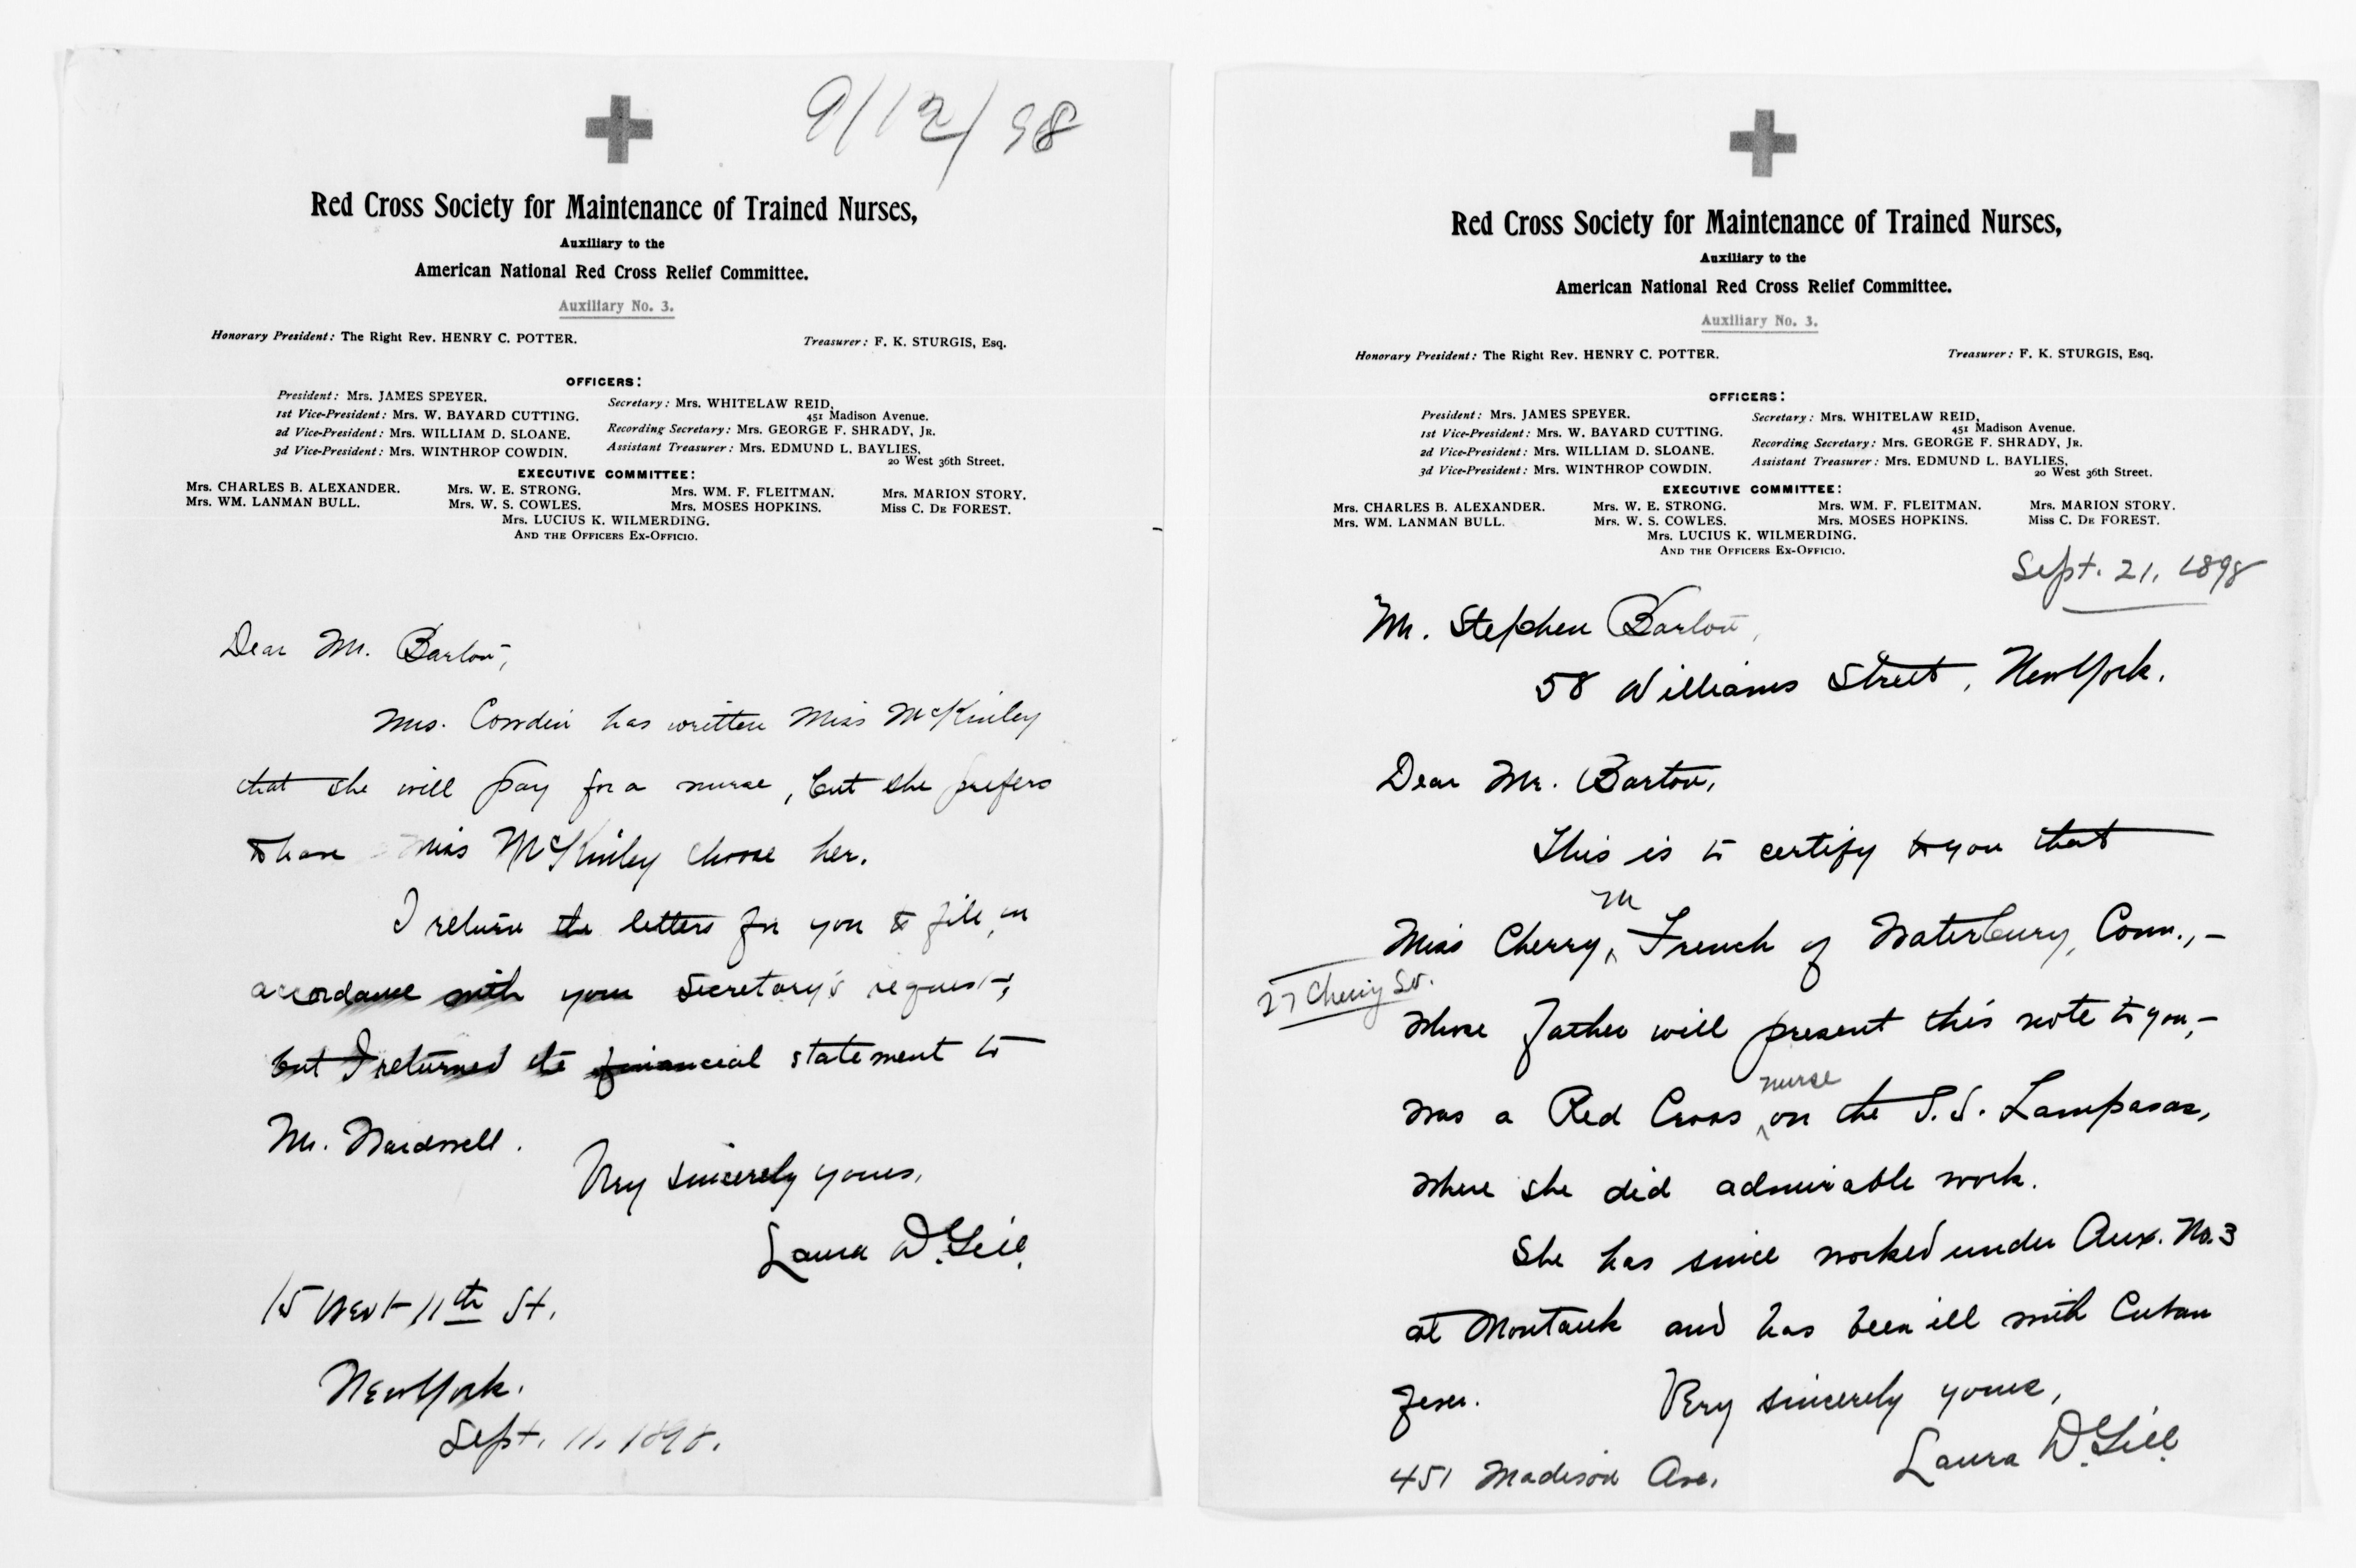 9/12/98
Red Cross Society for Maintenance of Trained Nurses,
Auxiliary to the
American National Red Cross Relief Committee.
Auxiliary No. 3.
Honorary President: The Right Rev. HENRY C. POTTER. Treasurer: F. K. STURGIS, Esq.
OFFICERS:
President: Mrs. JAMES SPEYER. Secretary: Mrs. WHITELAW REID,
451 Madison Avenue.
1st Vice-President: Mrs. W. BAYARD CUTTING. Recording Secretary: Mrs. GEORGE F. SHRADY, JR.
2d Vice-President: Mrs. WILLIAM D. SLOANE. Assistant Treasurer: Mrs. EDMUND L. BAYLIES,
3d Vice-President: Mrs. WINTHROP COWDIN. 20 West 36th Street.
EXECUTIVE COMMITTEE:
Mrs. CHARLES B. ALEXANDER. Mrs. W. E. STRONG. Mrs. WM. F. FLEITMAN. Mrs. MARION STORY.
Mrs. WM. LANMAN BULL. Mrs. W. S. COWLES. Mrs. MOSES HOPKINS. Miss C. DE FOREST.
Mrs. LUCIUS K. WILMERDING.
AND THE OFFICERS EX-OFFICIO.
Dear Mr. Barton,
Mrs. Cowdin has written Miss McKinley
that she will pay for a nurse, but she prefers
to have Miss McKinley choose her.
I return the letters for you to file, in
accordance with your Secretary's request,
but I returned the financial statement to
Mr. Wardwell.
Very sincerely yours,
Laura D. Gill.
15 West 11th St.
New York.
Sept. 11, 1898.
Red Cross Society for Maintenance of Trained Nurses,
Auxiliary to the
American National Red Cross Relief Committee.
Auxiliary No. 3.
Honorary President: The Right Rev. HENRY C. POTTER. Treasurer: F. K. STURGIS, Esq.
OFFICERS:
President: Mrs. JAMES SPEYER. Secretary: Mrs. WHITELAW REID,
451 Madison Avenue.
1st Vice-President: Mrs. W. BAYARD CUTTING. Recording Secretary: Mrs. GEORGE F. SHRADY, JR.
2d Vice-President: Mrs. WILLIAM D. SLOANE. Assistant Treasurer: Mrs. EDMUND L. BAYLIES,
3d Vice-President: Mrs. WINTHROP COWDIN. 20 West 36th Street.
EXECUTIVE COMMITTEE:
Mrs. CHARLES B. ALEXANDER. Mrs. W. E. STRONG. Mrs. WM. F. FLEITMAN. Mrs. MARION STORY.
Mrs. WM. LANMAN BULL. Mrs. W. S. COWLES. Mrs. MOSES HOPKINS. Miss C. DE FOREST.
Mrs. LUCIUS K. WILMERDING.
AND THE OFFICERS EX-OFFICIO.
Sept. 21, 1898
Mr. Stephen Barton,
58 Williams Street, New York.
Dear Mr. Barton,
This is to certify to you that
Miss Cherry M French of Waterbury, Conn.,-
27 Cherry St.
whose father will present this note to you,-
was a Red Cross nurse on the S.S. Lampasas,
where she did admirable work.
She has since worked under Aux. No. 3
at Montauk and has been ill with Cuban
fever. Very sincerely yours,
451 Madison Ave. Laura D. Gill.